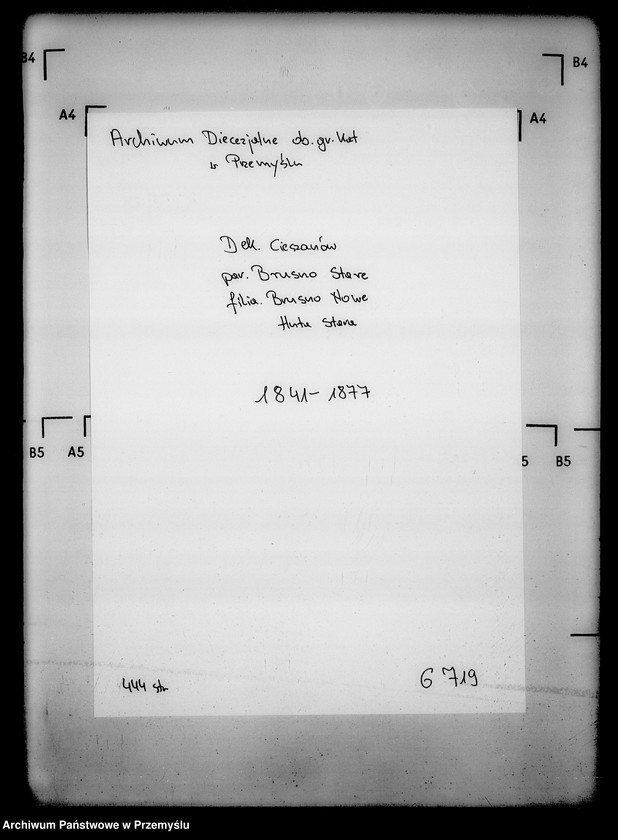 B4
B4
A4
A4
Archiwum Diecezjalne ob. gr. kat
w Przemyślu
Dek. Cieszanów
par. Brusno Stare
filia. Brusno Nowe
Huta Stara
1841 - 1877
B5
A5
5
B5
444 str
6 719
Archiwum Państwowe w Przemyślu